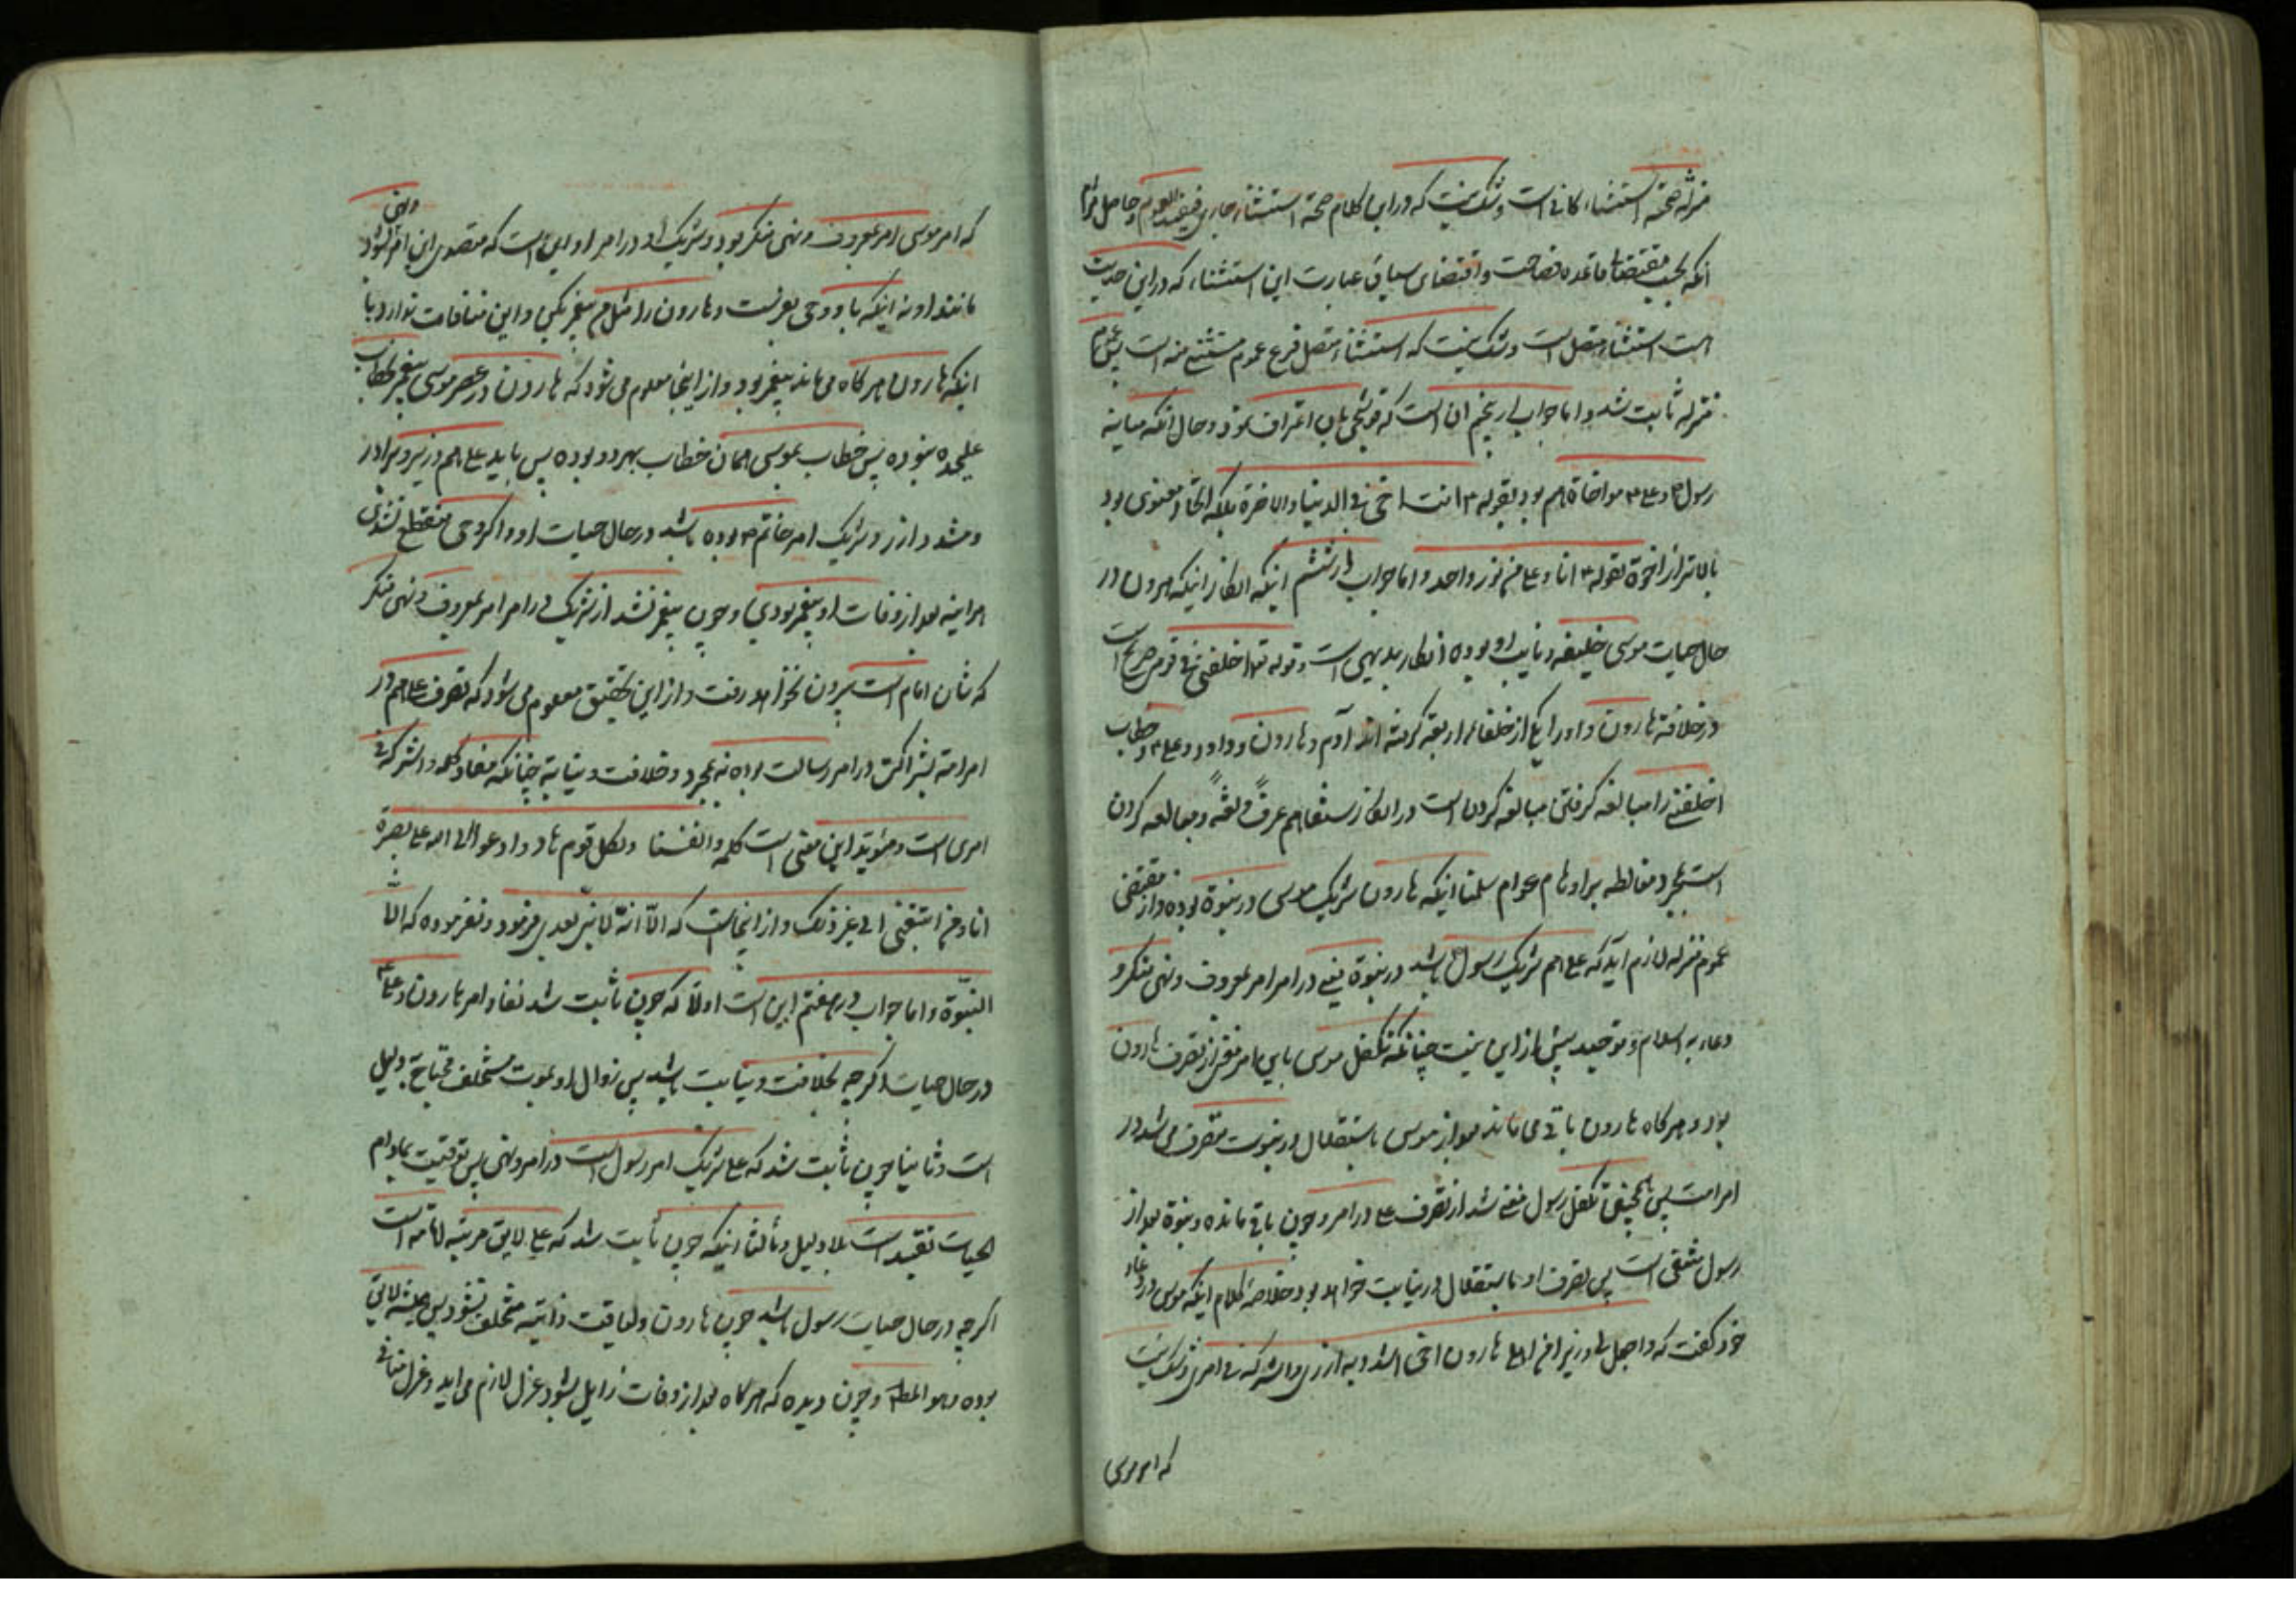 منزله صحة استثناء کافی است و شک نیست که در این کلام صحة استثناء جاری فیفید العموم و حاصل مرام
آنکه بحسب مقتضای قاعده فصاحت و اقتضای سیاق عبارت این استثناء که در این حدیث
است استثناء متصل است و شک نیست که استثناء متصل فرع عموم مستثنی منه است پس عموم
منزله ثابت شد و اما جواب از پنجم آن است که قوشجی بآن اعتراف نمود و حال آنکه میانه
رسول ص و علی ع مواخاة هم بود بقوله ص انت اخی فی الدنیا والاخرة بلکه اتحاد معنوی بود
بالاتر از اخوة بقوله ص انا و علی من نور واحد و اما جواب از ششم اینکه انکار اینکه هرون در
حال حیات موسی خلیفه و نایب او بوده انکار بدیهی است و قوله تعالی اخلفنی فی قومی صریح است
در خلافة هارون و او را یکی از خلفاء اربعه گرفته اند آدم و هارون و داود و علی ع و خطاب
اخلفنی را مبالغه گرفتن مبالغه کردن است در انکار مستفاهم عرفً ولغةً و معالعه کردن
است بمجرد مغالطه بر اوهام عوام سلمنا اینکه هارون شریک موسی در نبوة بوده و از مقتضی
عموم منزله لازم آید که علی هم شریک رسول باشد در نبوة یعنی در امر امر بمعروف و نهی منکر و
دعاء به اسلام و توحید پیش از این نیست چنانکه تکفل موسی باین امر مغنی از تصرف هارون
بود و هرگاه هارون باقی می ماند بعد از موسی باستقلال در نبوت متصرف می شد در
امر امت پس همچنین تکفل رسول مغنی شد از تصرف علی در امر و چون باقی مانده و نبوة بعد از
رسول منتفی است پس تصرف او باستقلال در نیابت خواهد بود خلاصه کلام اینکه موسی در دعاء
خود گفت که واجعل لی وزیرا من اهلی هارون اخی اشدد به ازری واشرکه فی امری و شک نیست
که امر موسی
که امر موسی امر بمعروف و نهی منکر بود و شریک او در امر او این است که متصدی این امر و نهی شود
مانند او نه اینکه با او وحی بفرست و هارون را مثل من پیغمبر کن و این منافات ندارد با
اینکه هارون هرگاه می ماند پیغمبر بود و از اینجا معلوم می شود که هارون در عصر موسی پیغمبر بخطاب
علیحده نبوده پس خطاب بموسی همان خطاب بهر دو بوده پس باید علی هم وزیر و برادر
و مشدد ازر و شریک امر خاتم ص بوده باشد در حال حیات او و اگر وحی منقطع نشدی
هر آینه بعد از وفات او پیغمبر بودی و چون پیغمبر نشد از شریک در امر امر بمعروف و نهی منکر
که شأن امام است بیرون نخواهد رفت و از این تحقیق معلوم می شود که تصرف علی هم در
امر امة بشراکت در امر رسالت بوده نه بمجرد و خلافت و نیابة چنانکه مفاد کلمه واشرکه فی
امری است و مؤید این معنی است کلمه وانفسنا ولکل قوم هاد وادعوا الی الله علی بصیرة
انا ومن اتبعنی الی غیر ذلک و از اینجاست که الّا انّه لا نبیّ بعدی فرمود و نفرموده که الّا
النبوّة و اما جواب از هفتم این است اولاً که چون ثابت شد نفاذ امر هارون و علی ع
در حال حیات اگرچه بخلافت و نیابت باشد پس زوال او بموت مستخلف محتاج بدلیل
است و ثانیا چون ثابت شد که علی شریک امر رسول است در امر و نهی پس توقیت بمادام
الحیات تقیید است بلا دلیل و ثالثا اینکه چون ثابت شد که علی لایق مرتبه امامت است
اگرچه در حال حیات رسول باشد چون هارون و لیاقت ذاتیه متخلف نشود پس همیشه لایق
بوده وهو المط و چون دیده که هرگاه بعد از وفات زایل شود عزل لازم می آید و عزل منافی